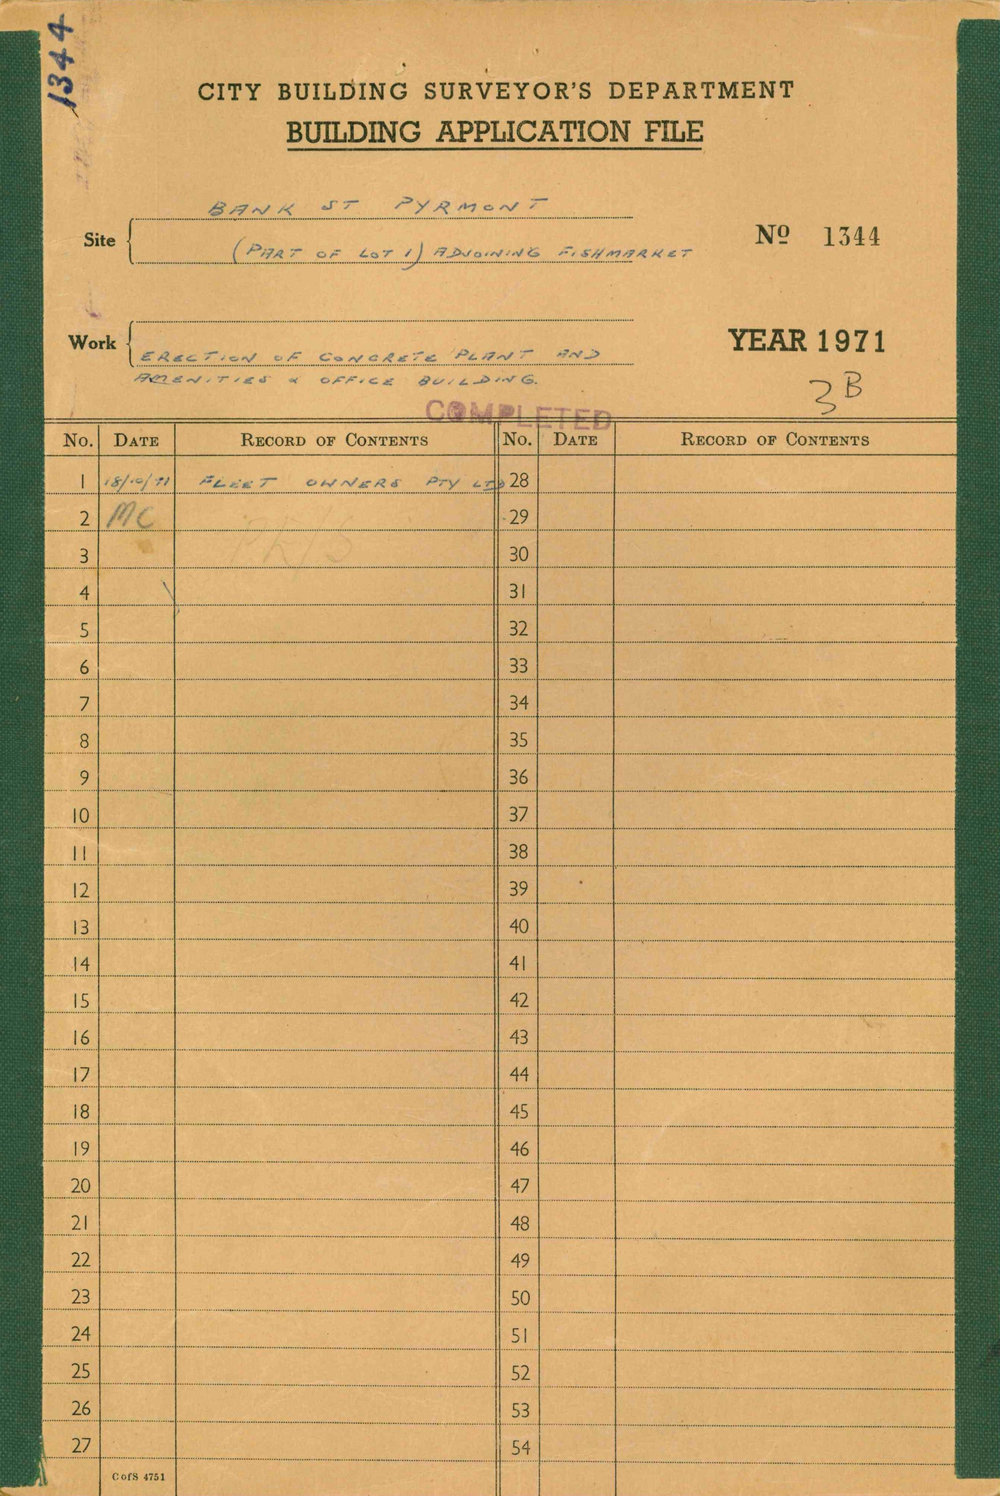 1344
CITY BUILDING SURVEYOR'S DEPARTMENT
BUILDING APPLICATION FILE
BANK ST PYRMONT
Site (PART OF LOT 1) ADJOINING FISHMARKET
Nº 1344
Work ERECTION OF CONCRETE PLANT AND
AMENITIES & OFFICE BUILDING.
YEAR 1971
3B
COMPLETED
No. DATE RECORD OF CONTENTS No. DATE RECORD OF CONTENTS
1 18/10/71 FLEET OWNERS PTY LTD 28
2 MC 29
3 30
4 31
5 32
6 33
7 34
8 35
9 36
10 37
11 38
12 39
13 40
14 41
15 42
16 43
17 44
18 45
19 46
20 47
21 48
22 49
23 50
24 51
25 52
26 53
27 54
C of S 4751